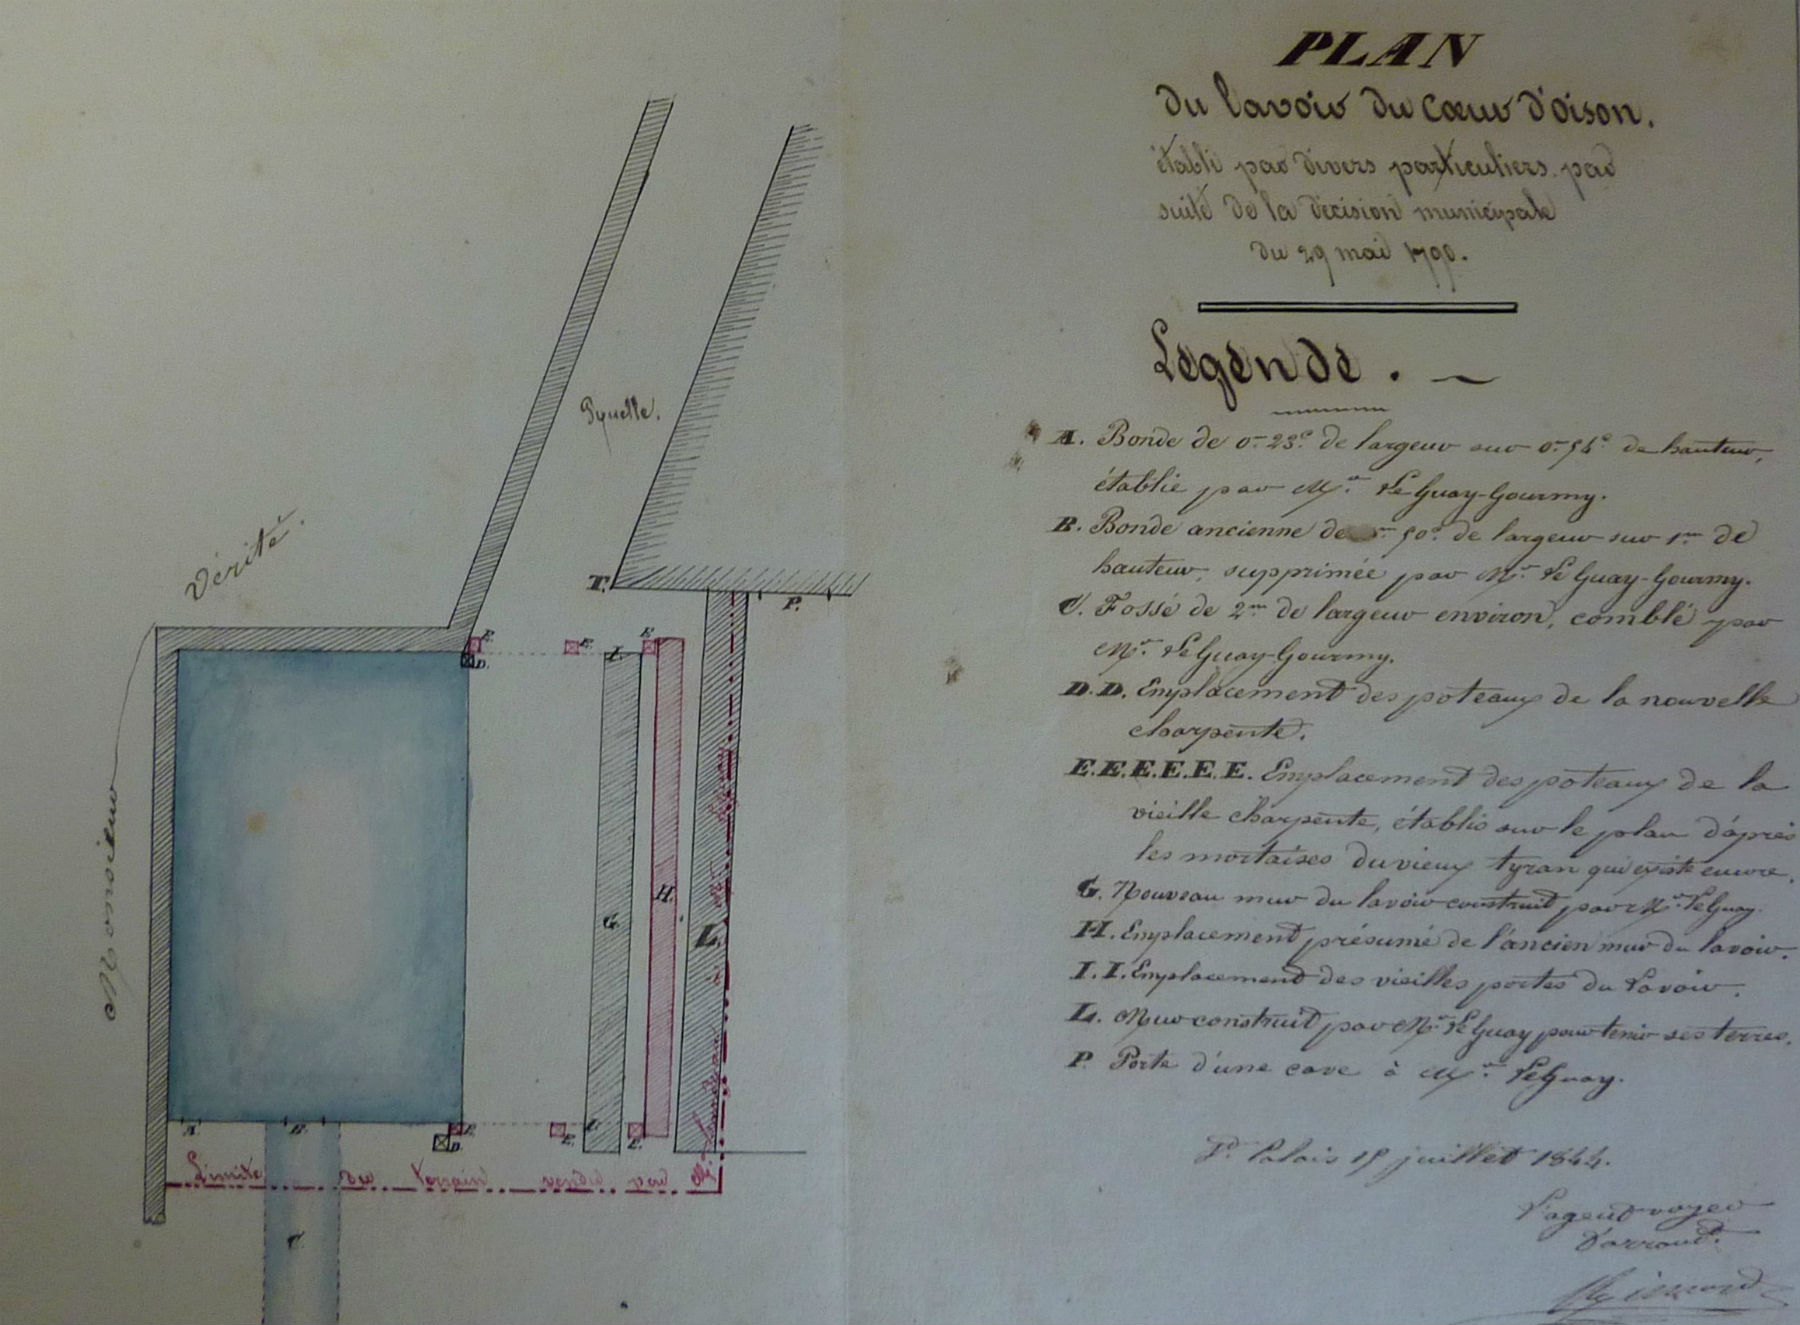 PLAN
du lavoir du Cœur d'oison.
établi par divers particuliers par
suite de la décision municipale
du 29 mai 1790.
Légende.
A. Bonde de 0m 23c de largeur sur 0m 54c de hauteur,
établie par Mr Le Guay-Gourmy.
B. Bonde ancienne de 50c de largeur sur 1m de
hauteur, supprimée par Mr Le Guay-Gourmy.
C. Fossé de 2m de largeur environ, comblé par
Mr Le Guay-Gourmy.
D.D. Emplacement des poteaux de la nouvelle
charpente.
E.E.E.E.E.E. Emplacement des poteaux de la
vieille charpente, établis sur le plan d'après
les mortaises du vieux tyran qui existe encore.
G. Nouveau mur du lavoir construit par Mr Le Guay.
H. Emplacement présumé de l'ancien mur du lavoir.
I.I. Emplacement des vieilles portes du Lavoir.
L. Mur construit par Mr Le Guay pour tenir ses terres.
P. Porte d'une cave à Mr Le Guay.
Palais 15 juillet 1844.
L'agent voyer
d'arrondt
Monsieur
Vérité.
T.
P.
E.
E.
E.
D.
I.
G.
H.
L.
A.
B.
E.
D.
E.
I.
E.
Limite du terrain vendu par Mr
C.